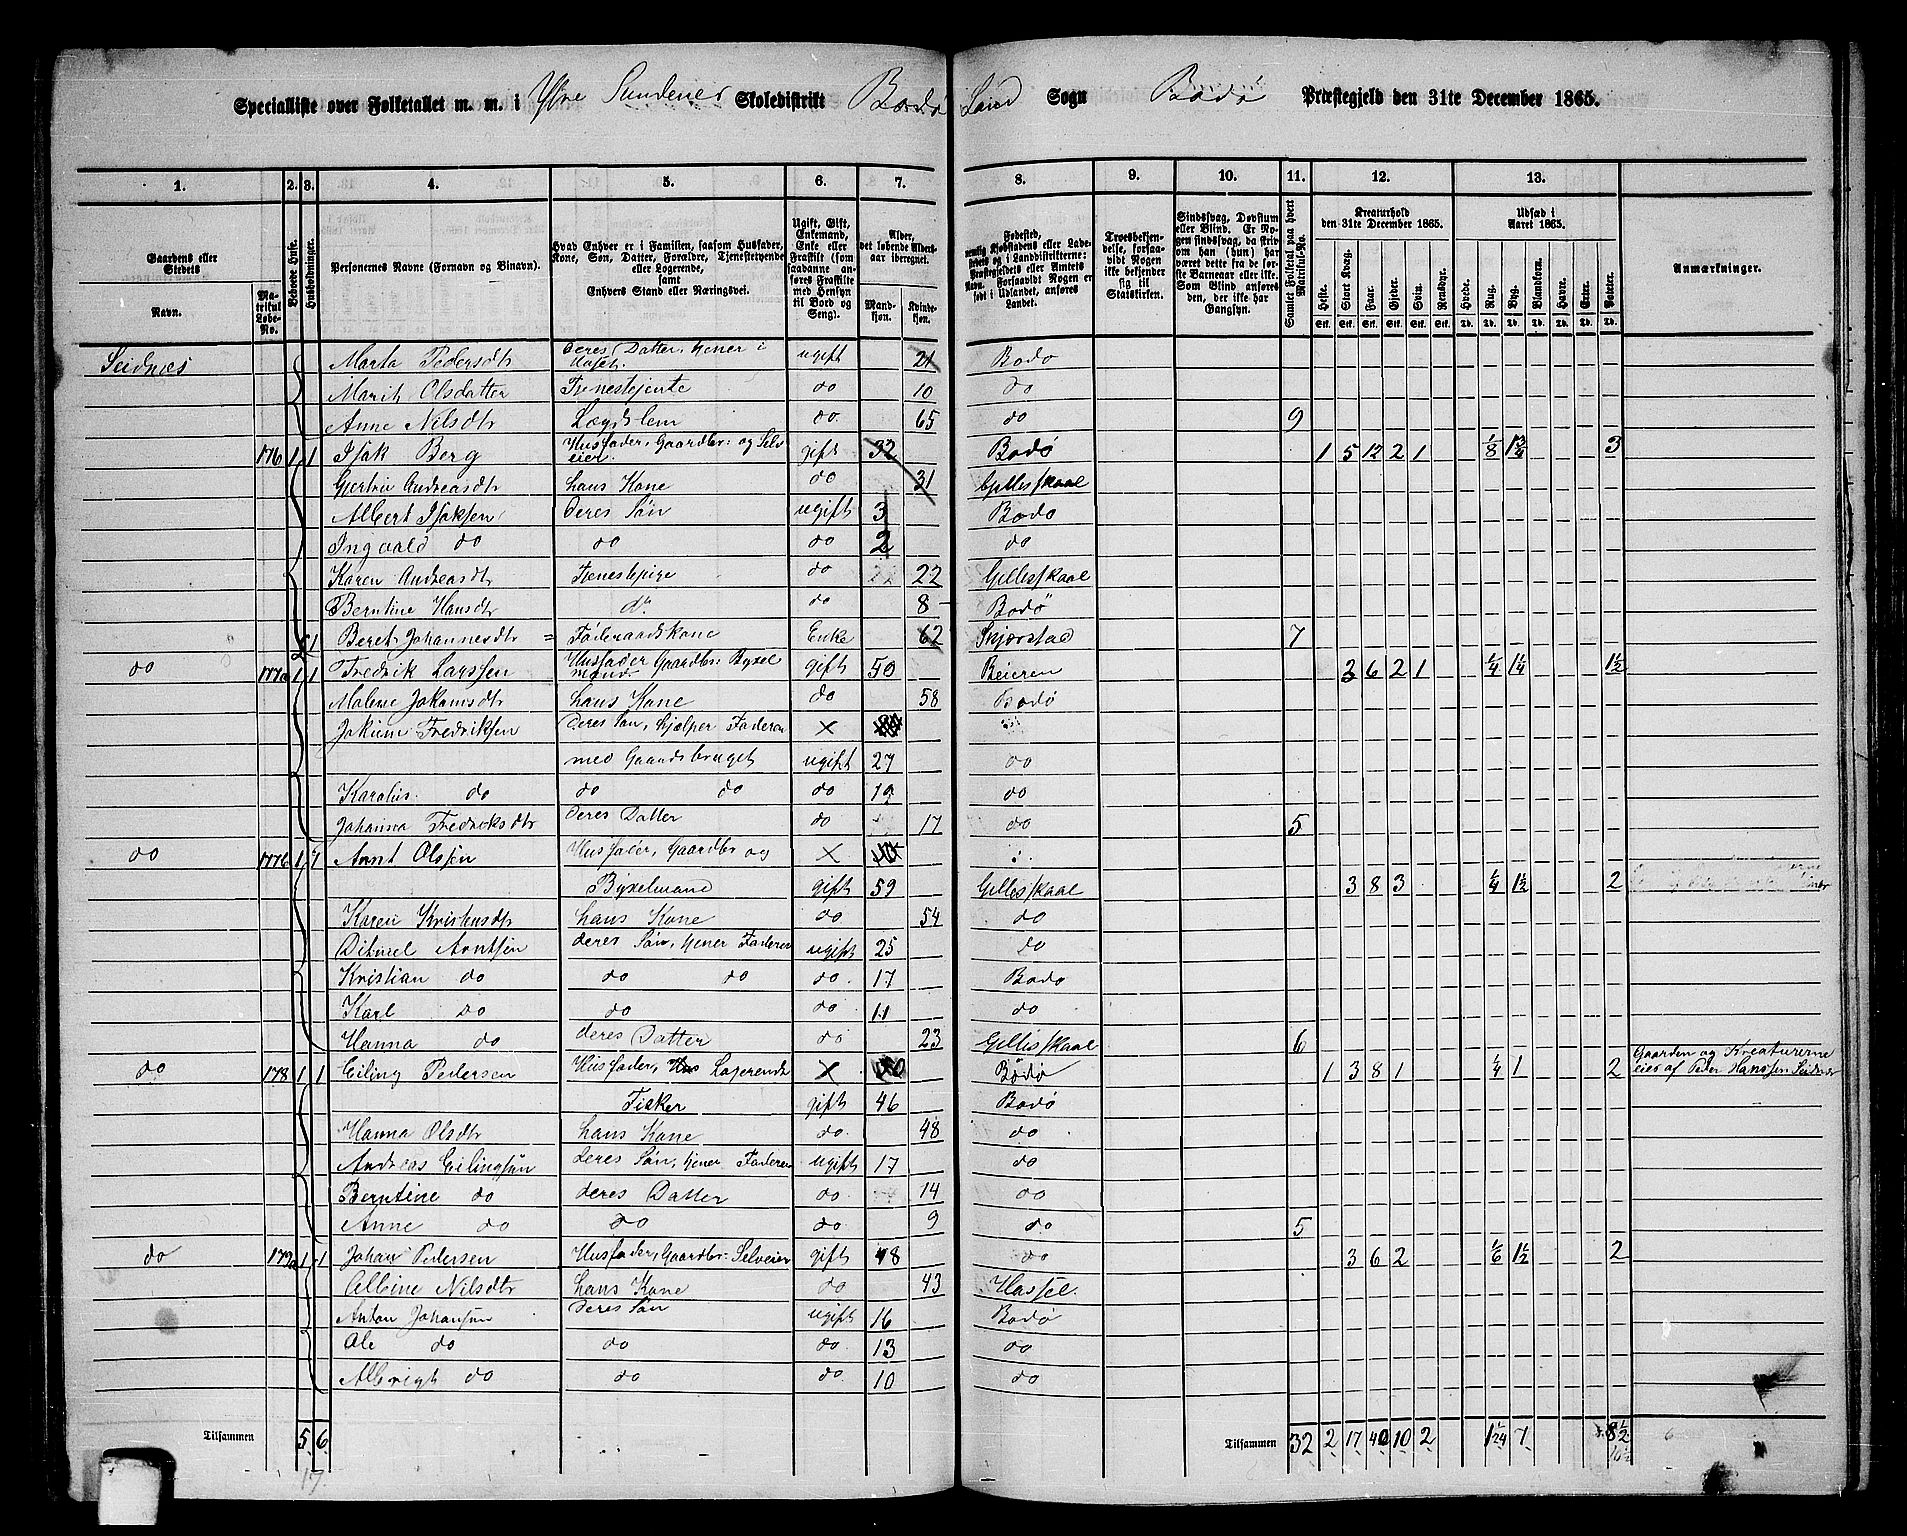 Specialliste over Folketallet m. m. i Ytre Sundenes Skoledistrikt Bodø Land Sogn Bodø Præstegjeld den 31te December 1865.
1. 2. 3. 4. 5. 6. 7. 8. 9. 10. 11. 12. 13.
Gaardens eller Stedets Navn. Matrikul Løbe-No. Beboede Huse. Husholdninger. Personernes Navne (Fornavn og Binavn). Hvad Enhver er i Familien, saasom Husfader, Kone, Søn, Datter, Forældre, Tjenestetyende eller Logerende, samt Enhvers Stand eller Næringsvei. Ugift, Gift, Enkemand, Enke eller Fraskilt (som saadanne anføres Fraskilte med Hensyn til Bord og Seng). Alder, det løbende Aldersaar iberegnet. Mandkøn. Kvindekøn.
Fødested, Troesbekjendelse, forsaavidt Nogen ikke bekjender sig til Statskirken. Sindssvag, Døvstum eller Blind. Samlet Folketal paa hvert Matrikul-No. Kreaturhold den 31te December 1865. Heste. Stort Kvæg. Faar. Gjeder. Svin. Rensdyr. Udsæd i Aaret 1865. Hvede. Rug. Byg. Blandkorn. Havre. Erter. Poteter. Anmærkninger.
Seidnes Marta Pedersdtr deres Datter, tjener i Huset. ugift 21 Bodø
Marit Olsdatter Tjenestejente do 10 do
Anne Nilsdtr Lægdslem do. 65 do 9
176 1 1 Isak Berg Husfader, Gaardbr: og Selveier. gift 32 Bodø 1 5 12 2 1 1/8 1 3/4 3
Gjertru Andreasdtr hans Kone do 31 Gilleskaal
Albert Isaksen deres Søn ugift 3 Bodø
Ingvald do do do 2 do
Karen Andreasdtr Tjenestepige do 22 Gilleskaal
Berntine Hansdtr do do 8 Bodø
1 Beret Johannesdtr Føderaadskone Enke 62 Skjerstad 7
do 177a 1 1 Fredrik Larssen Husfader Gaardbr: Bygselmand gift 50 Beieren 3 6 2 1 1/4 1 1/4 1 1/2
Malene Jakamsdtr hans Kone do 58 Bodø
Jakum Fredriksen deres Søn, hjælper Faderen X
med Gaardsbruget ugift 27 do
Karolus. do do do do 19 do
Johanna Fredriksdtr deres Datter do 17 do 5
do 177b 1 1 Arnt Olssen Husfader, Gaardbr og X
Bygselmand gift 59 Gilleskaal 3 8 3 1/4 1 1/2 2
Karen Kristensdtr hans Kone do 54 do
Ditmel Arntsen deres Søn, tjener Faderen ugift 25 do
Kristian do do do do. 17 Bodø
Karl do do do 11 do
Hanna do deres Datter do 23 Gilleskaal 6
do 178 1 1 Eiling Pedersen Husfader, Logerende X Bodø 1 3 8 1 1/4 1 2 Gaarden og Kreaturerne eies af Peder Hanssen Seidnes
Fisker gift 46 Bodø
Hanna Olsdtr hans Kone do. 48 do
Andreas Eilingsøn deres Søn, tjener Faderen ugift 17 do
Berntine do deres Datter do. 14 do
Anne do do do. 9 do 5
do 179a 1 1 Johan Pedersen Husfader, Gaardbr: Selveier gift 48 do 3 6 2 1/6 1 1/2 2
Albine Nilsdtr hans Kone do 43 Hassel.
Anton Johansen deres Søn ugift 16 Bodø
Ole do do do 13 do
Albrigt do do do. 10 do
Tilsammen 5 6 Tilsammen 32 2 17 40 10 2 1 1/24 7 8 1/2
17